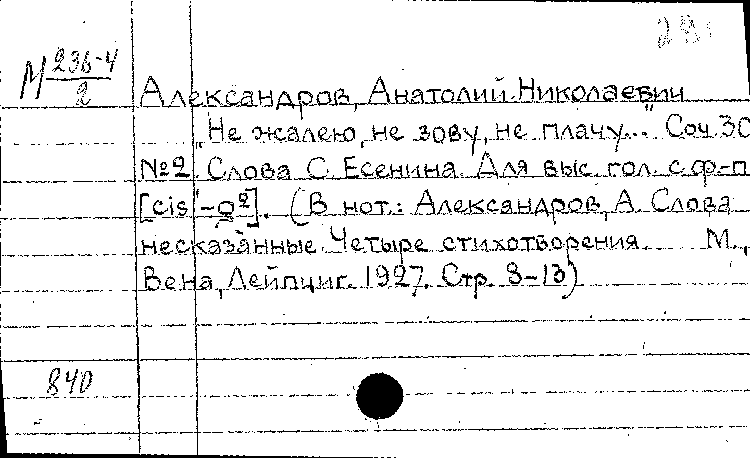 М 236-4
2
Александров, Анатолий Николаевич
„Не жалею, не зову, не плачу..." Соч. 30
№2. Слова С. Есенина. Для выс. гол. с ф-п
[cis' - g²]. (В нот.: Александров, А. Слова
несказанные. Четыре стихотворения. М.,
Вена, Лейпциг. 1927. Стр. 8-13)
840